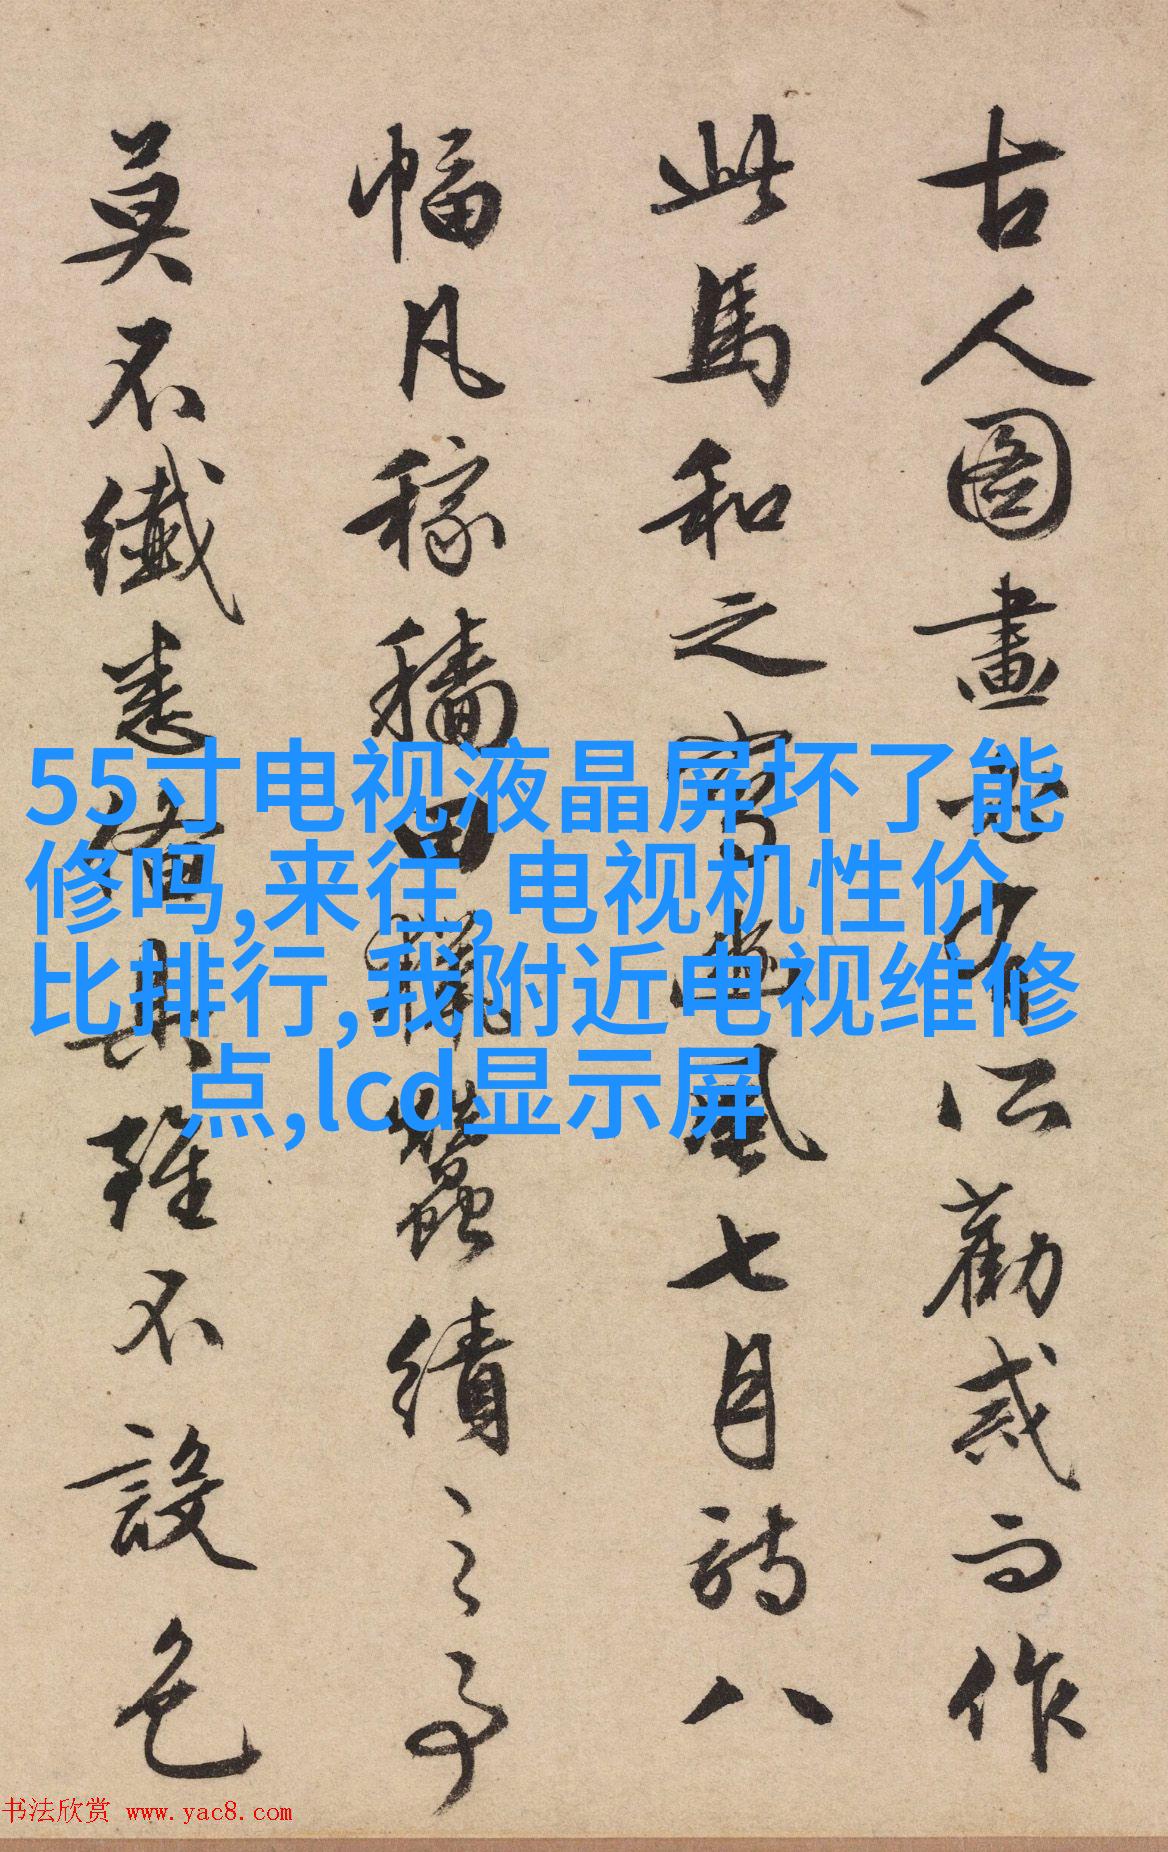 古人圖畫無非以勸戒而作
此馬和之寫豳風七月詩八
幅凡稼穡田獵蠶績之事
莫不纖悉備具雖不設色
55寸电视液晶屏坏了能
修吗,来往,电视机性价
比排行,我附近电视维修
点,lcd显示屏
书法欣赏 www.yac8.com